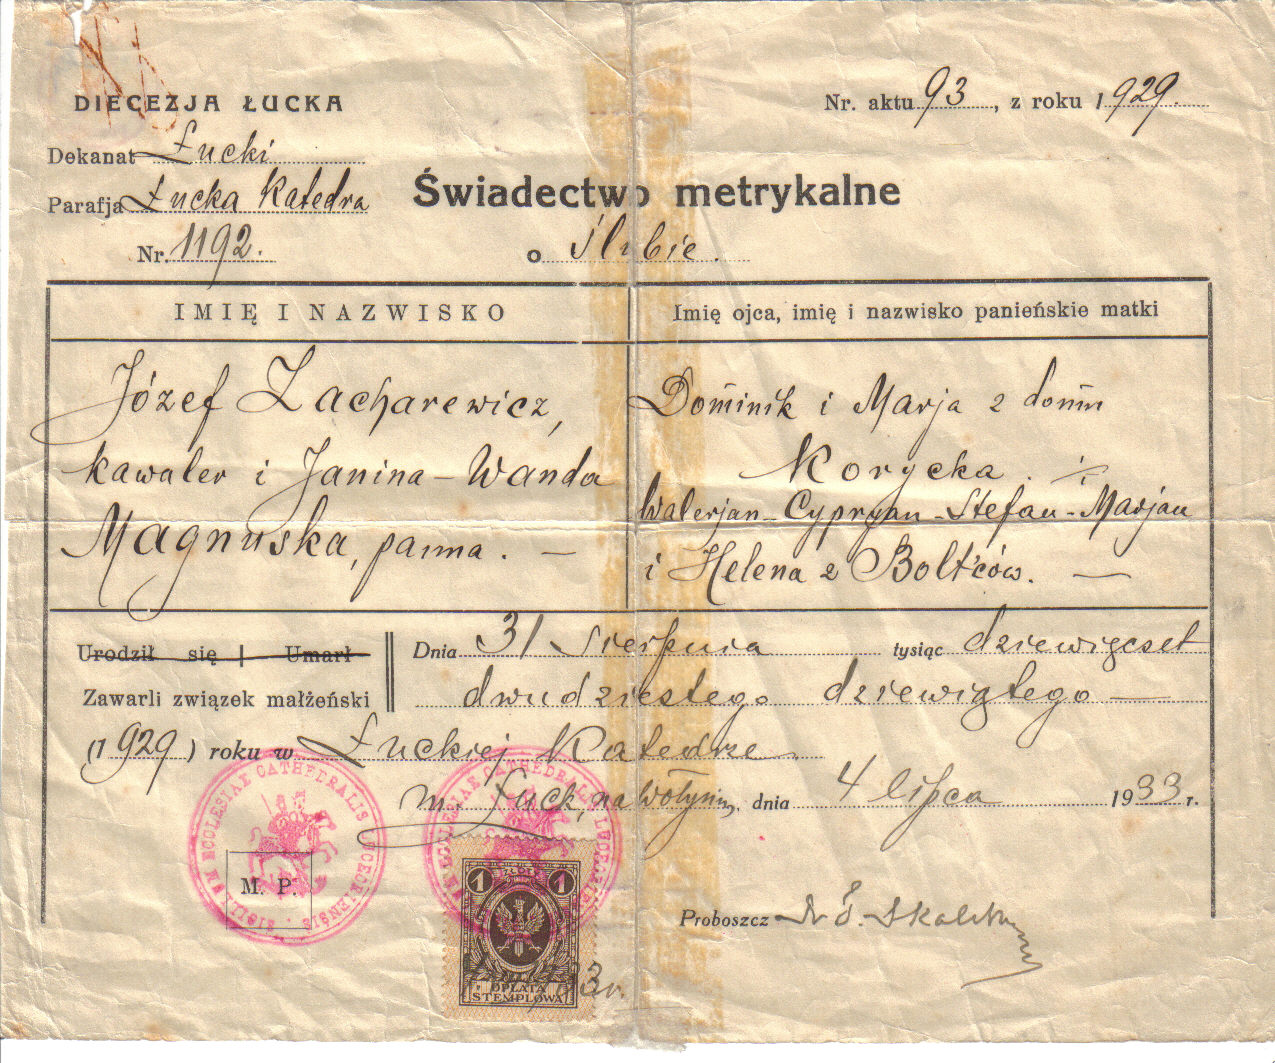 DIECEZJA ŁUCKA
Nr. aktu 93, z roku 1929.
Dekanat Łucki
Parafja Łucka Katedra
Świadectwo metrykalne
Nr. 1192.
o ślubie.
IMIĘ I NAZWISKO
Imię ojca, imię i nazwisko panieńskie matki
Józef Zacharewicz,
kawaler i Janina-Wanda
Magnuska, panna. —
Dominik i Marja z domu
Korycka. i
Walerjan-Cyprjan-Stefan-Marjan
i Helena z Bolt'ców. —
Urodził się | Umarł
Zawarli związek małżeński
Dnia 31 Sierpnia tysiąc dziewięcset
dwudziestego dziewiątego —
(1929) roku w Łuckiej Katedrze
m. Łuck, na Wołyniu, dnia 4 lipca 1933 r.
SIGILLUM ECCLESIAE CATHEDRALIS LUCEORIENSIS
M. P.
1 ZŁOTY 1
OPŁATA
STEMPLOWA
Proboszcz